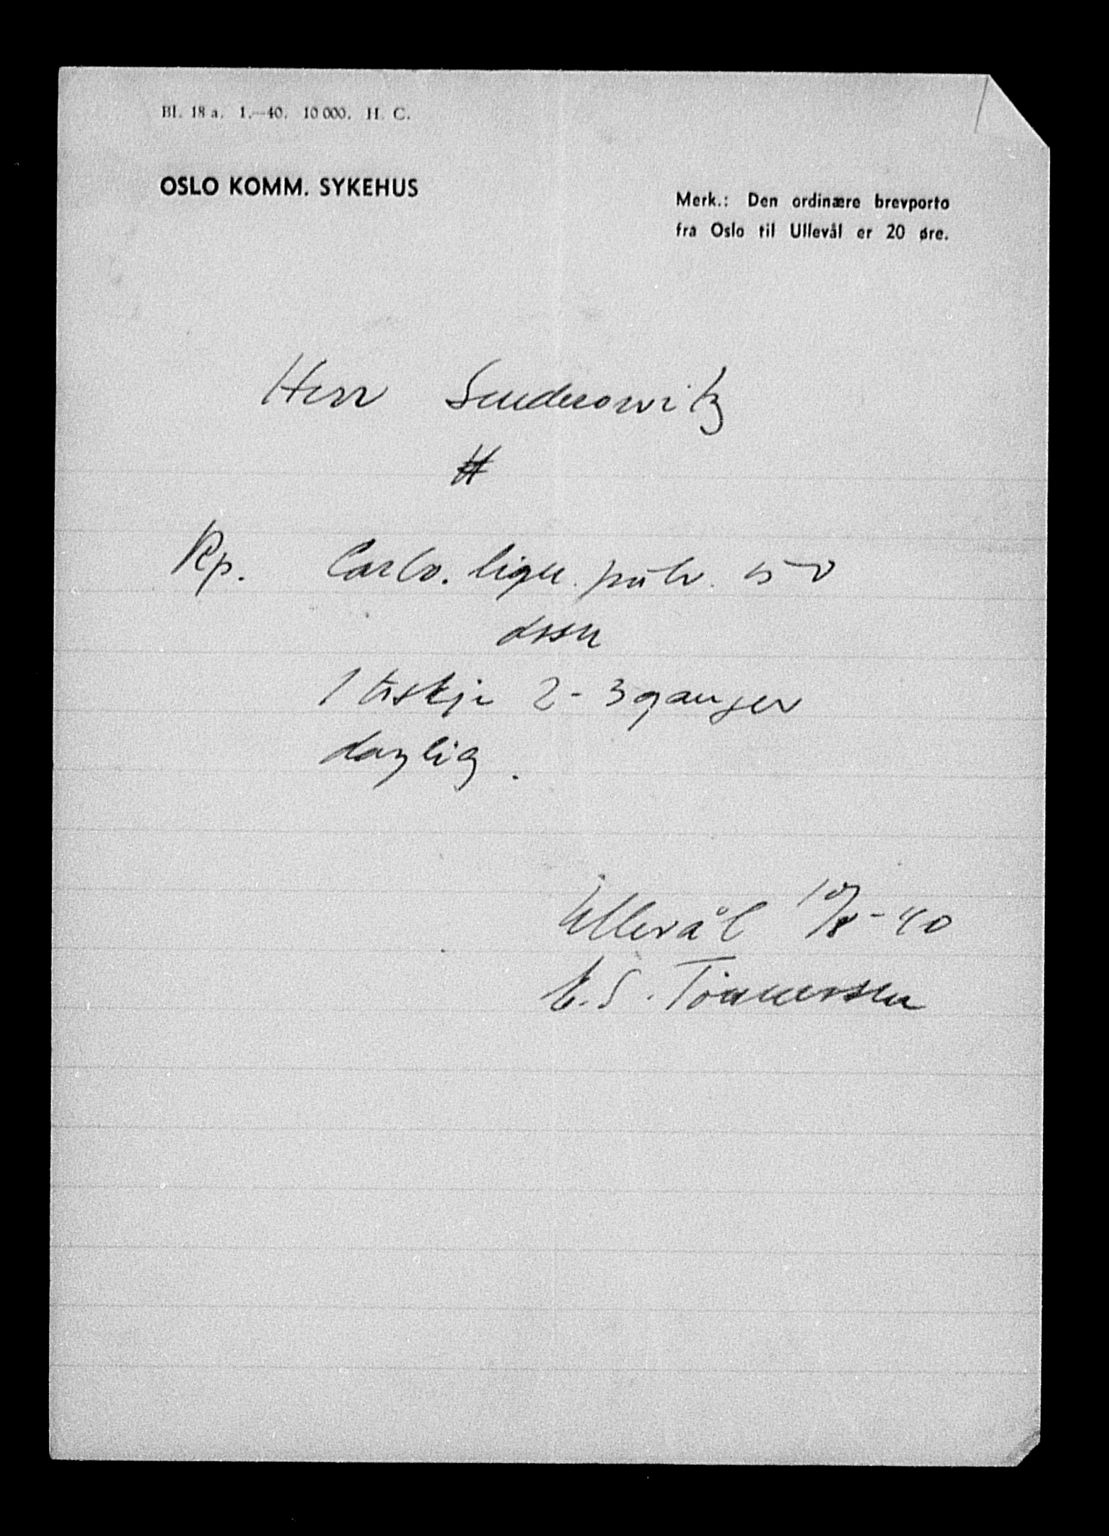 Bl. 18 a. 1.—40. 10 000. H. C.
OSLO KOMM. SYKEHUS
Merk.: Den ordinære brevporto
fra Oslo til Ullevål er 20 øre.
Herr Senderowitz
#
Rp. Carbo. lign. pulv. 50
1 teskje 2-3 ganger
daglig.
Ullevål 10/8-40
E.S.